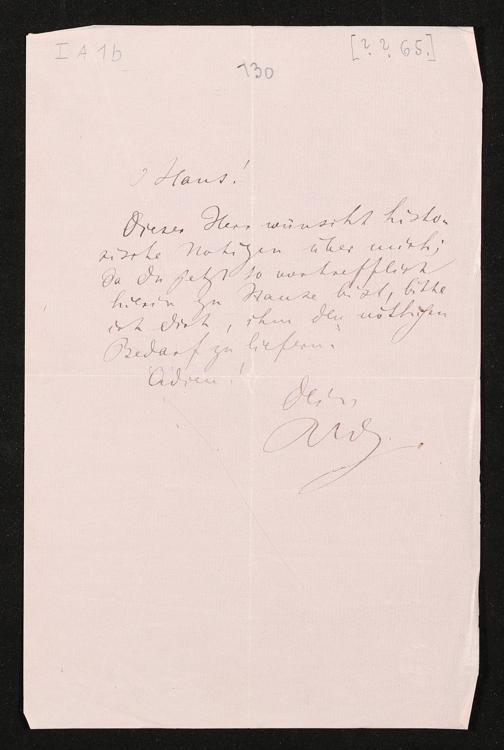 I A 1b
[?. ?. 65.]
130
O Hans!
Dieser Herr wünscht histo-
rische Notizen über mich;
da Du jetzt so vortrefflich
hierin zu Hause bist, bitte
ich Dich, ihm den nöthigen
Bedarf zu liefern.
Adieu!
Dein